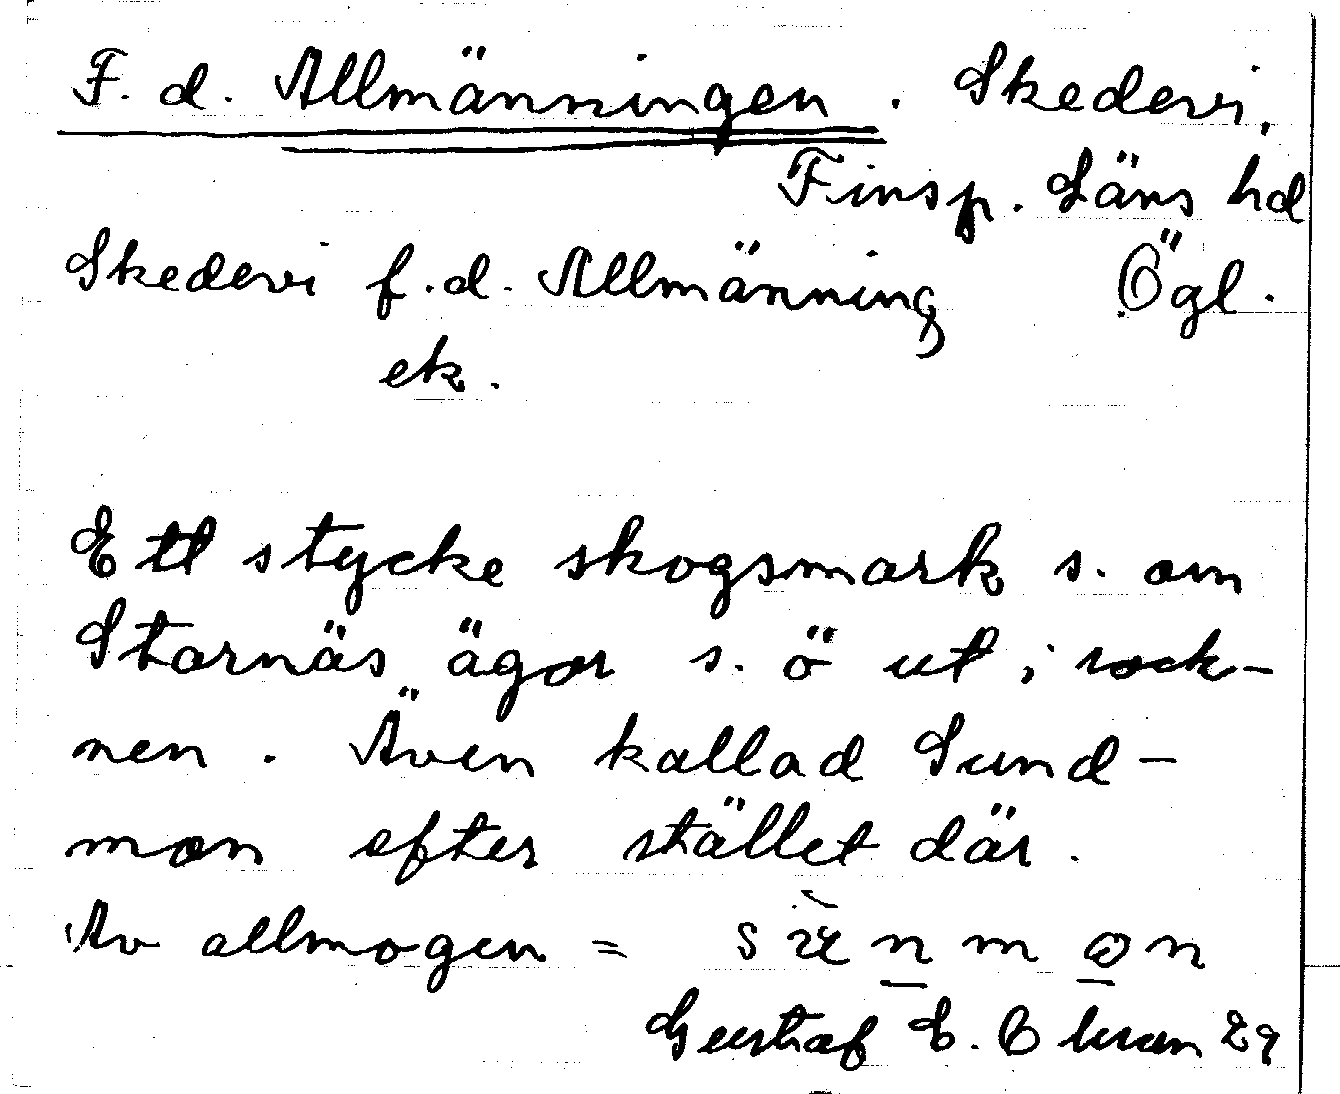 F. d. Allmänningen. Skedevi,
Finsp. Läns hd
Skedevi f. d. Allmänning Ögl.
ek.
Ett stycke skogsmark s. om
Starnäs ägor s. ö ut i sock-
nen. Även kallad Sund-
mon efter stället där.
Av allmogen =
Gustaf E. 29